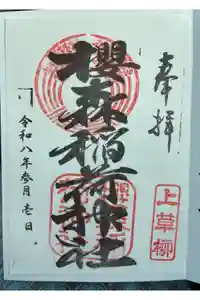 奉拝
櫻森稲荷神社
令和八年参月壱日
上草柳